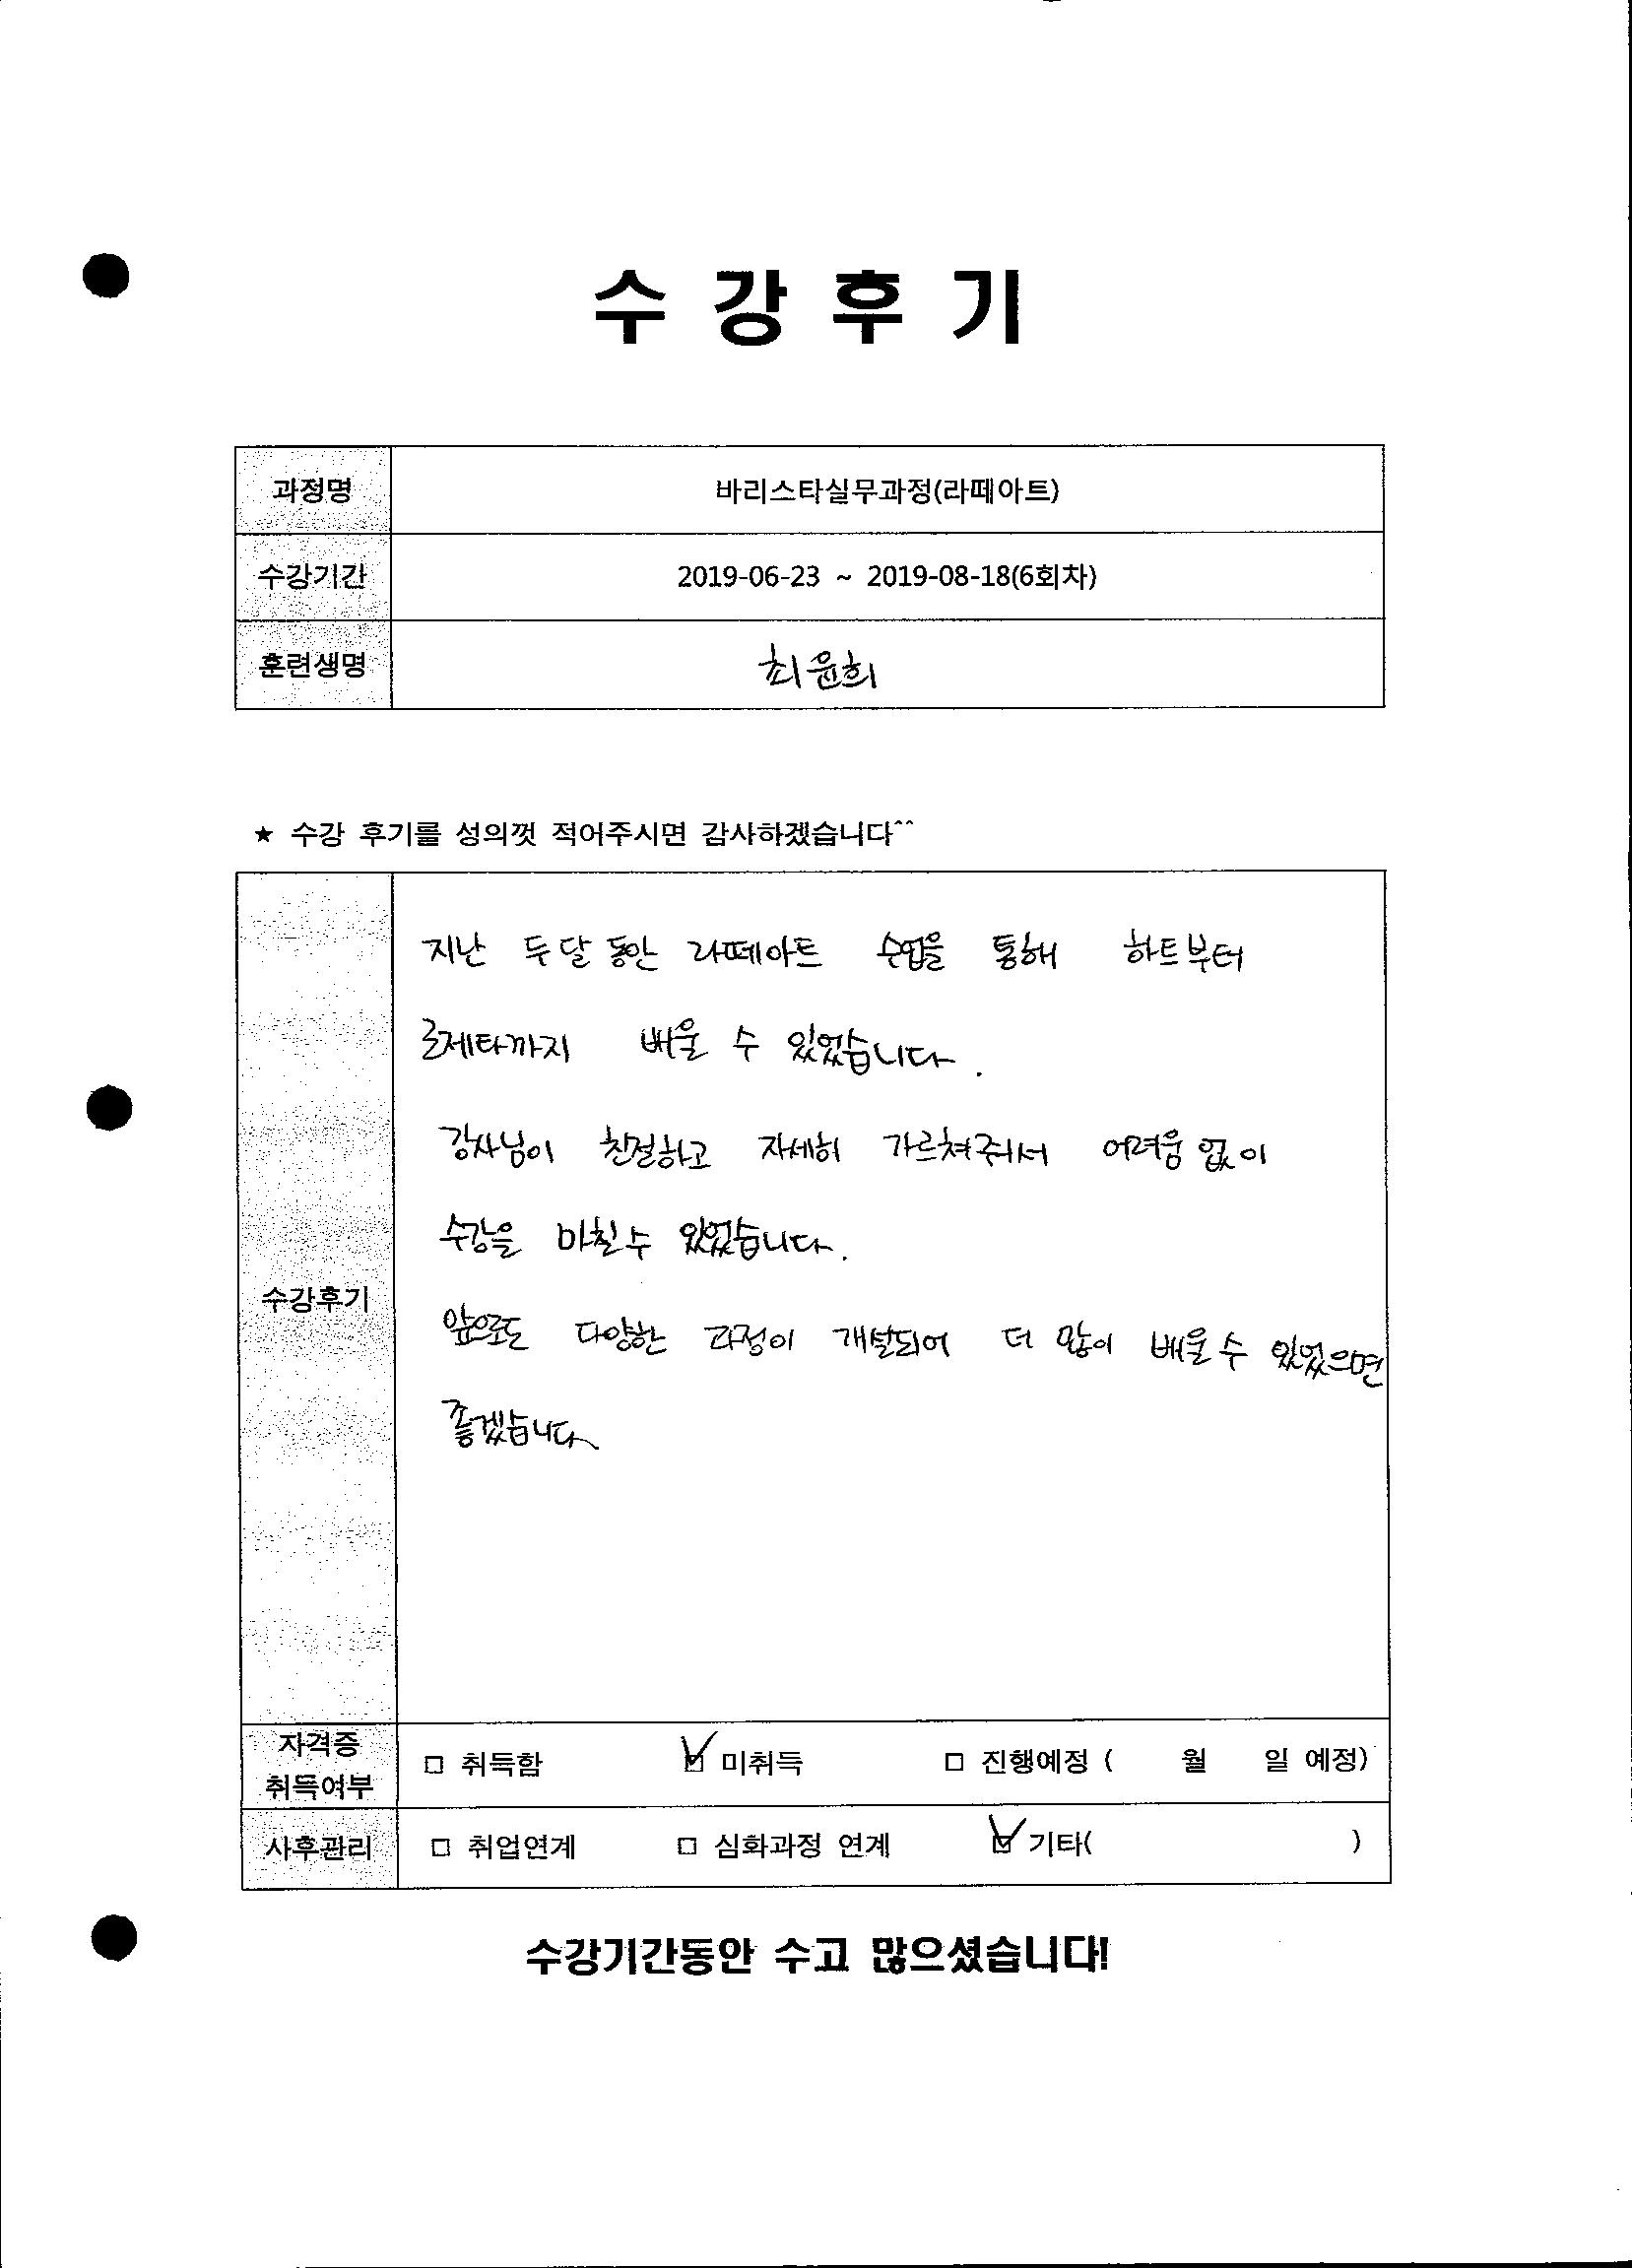 수 강 후 기
과정명 바리스타실무과정(라떼아트)
수강기간 2019-06-23 ~ 2019-08-18(6회차)
훈련생명 최윤희
★ 수강 후기를 성의껏 적어주시면 감사하겠습니다^^
지난 두달 동안 라떼아트 수업을 통해 하트부터
로제타까지 배울 수 있었습니다.
강사님이 친절하고 자세히 가르쳐줘서 어려움 없이
수강을 마칠수 있었습니다.
수강후기
앞으로도 다양한 과정이 개발되어 더 많이 배울수 있었으면
좋겠습니다
자격증
취득여부
□ 취득함 ☑ 미취득 □ 진행예정 ( 월 일 예정)
사후관리 □ 취업연계 □ 심화과정 연계 ☑ 기타( )
수강기간동안 수고 많으셨습니다!